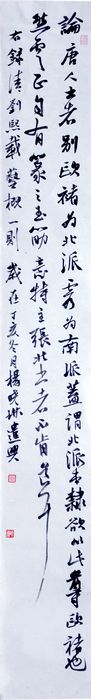 論唐人書者別歐褚為北派虞為南派蓋謂北派本隸欲以此尊歐褚也
然虞正自有篆之玉筋意特主張北書者不肯道耳
右録清劉熙載藝概一則 歲在丁亥冬月楊遣興